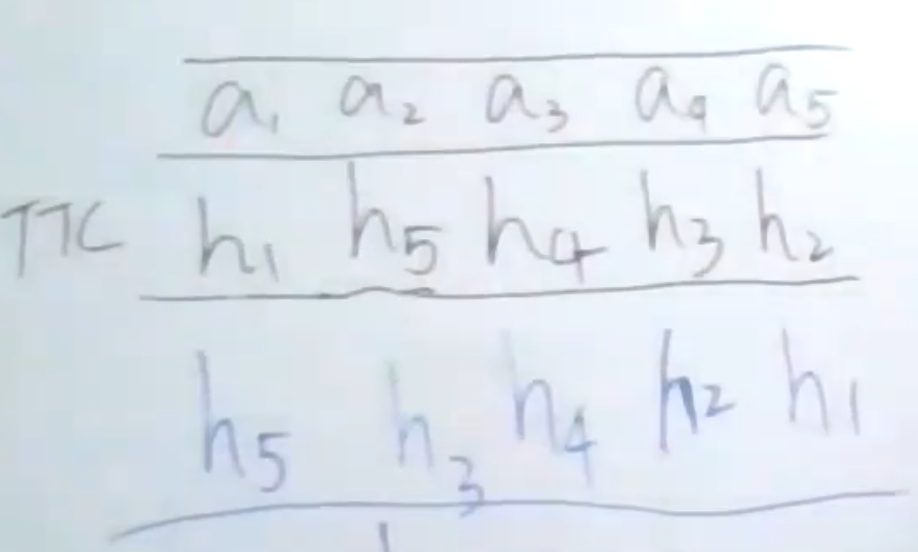 a₁ a₂ a₃ a₄ a₅
TTC h₁ h₅ h₄ h₃ h₂
h₅ h₃ h₄ h₂ h₁